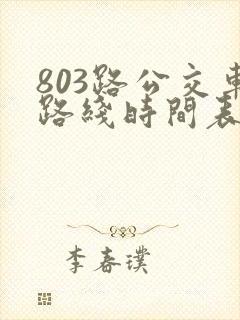 803路公交車
路綫時間表
李春璞